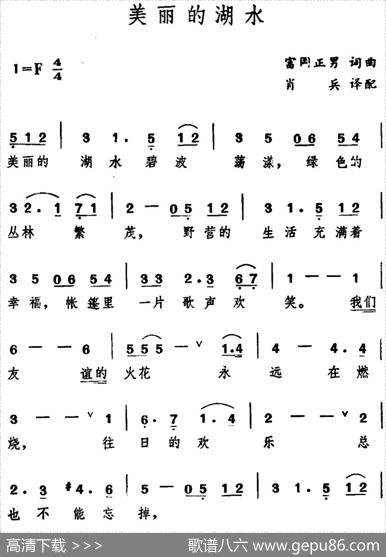 美丽的湖水
1=F 4/4
富冈正男 词曲
肖兵 译配
5 1 2 | 3 1. 5 1 2 | 3 5 0 6 5 4 |
美丽的 湖水碧波 荡漾，绿色的
3 2. 1 7 1 | 2 — 0 5 1 2 | 3 1. 5 1 2 |
丛林繁茂，野营的 生活充满着
3 5 0 6 5 4 | 3 3 2. 3 6 7 | 1 — — 1 |
幸福，帐篷里 一片歌声欢 笑。我们
6 — — 6 | 5 5 5 — — ∨ 1. 4 | 4 — 4. 4 |
友谊的火花 永远在燃
3 — — ∨ 1 | 6. 7 1. 4 | 2 — — ∨ 2 |
烧，往日的欢乐总
2. 3 #4. 6 | 5 — 0 5 1 2 | 3 1. 5 1 2 |
也不能忘掉，
高清下载 >>>
歌谱八六 www.gepu86.com